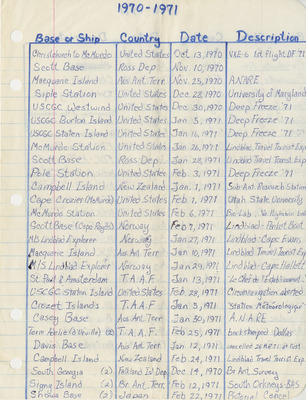 1970-1971
Base or Ship Country Date Description
Christchurch to McMurdo United States Oct 13, 1970 VXE-6 1st Flight DF '71
Scott Base Ross Dep. Nov. 10, 1970
Macquarie Island Aus Ant. Terr. Nov 25, 1970 A.N.A.R.E.
Siple Station United States Dec 28, 1970 University of Maryland
USCGC Westwind United States Dec 30, 1970 Deep Freeze '71
USCGC Burton Island United States Jan 5, 1971 Deep Freeze '71
USCGC Staten Island United States Jan 16, 1971 Deep Freeze '71
McMurdo Station United States Jan 26, 1971 Lindblad Travel Tourist Exp.
Scott Base Ross Dep. Jan 28, 1971 Lindblad Travel Tourist Exp
Pole Station United States Feb. 3, 1971 Deep Freeze '71
Campbell Island New Zealand Jan. 1, 1971 Sub-Ant. Research Station
Cape Crozier (McMurdo) United States Feb 1, 1971 Utah State University
McMurdo Station United States Feb 6, 1971 Bio-Lab
Scott Base (Cape Royds) Norway Feb 7, 1971 Lindblad: Penlet Boat
M/S Lindblad Explorer Norway Jan 27, 1971 Lindblad: Cape Evans
Macquarie Island Aus Ant. Terr. Jan 10, 1971 Lindblad Travel Tourist Exp.
M/S Lindblad Explorer Norway Jan 29, 1971 Lindblad: Cape Hallett
St. Paul & Amsterdam T.A.A.F. Jan 13, 1971
USCGC Staten Island United States Feb 28, 1971 Circumnavigation aborted
Crozet Islands T.A.A.F. Jan 3, 1971 Station Météorologique
Casey Base Aus Ant. Terr. Jan 30, 1971 A.N.A.R.E.
Terre Adélie (D'Urville) (2) T.A.A.F. Feb 25, 1971 backstamped: Dallas
Davis Base Aus Ant. Terr. Jan 12, 1971 cancelled as
Campbell Island New Zealand Feb 24, 1971 Lindblad Travel Tourist Exp.
South Georgia (2) Falkland Isl Dep. Dec 14, 1970 Br. Ant. Survey
Signy Island (2) Br. Ant. Terr. Feb 12, 1971 South Orkneys-BAS
Showa Base (2) Japan Feb 22, 1971 Pictorial Cancel